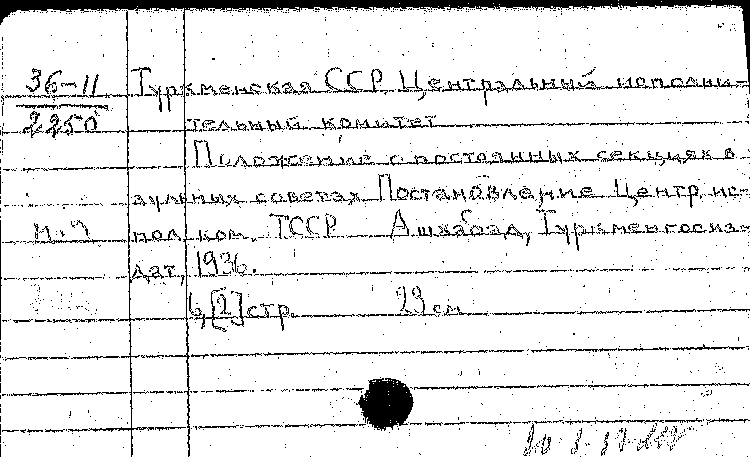 36-11
2250
Туркменская ССР. Центральный исполни-
тельный комитет
Положение о постоянных секциях в
аульных советах Постановление Центр. ис-
пол. ком. ТССР Ашхабад, Туркменгосиз-
дат, 1936.
6, [2] стр. 23 см